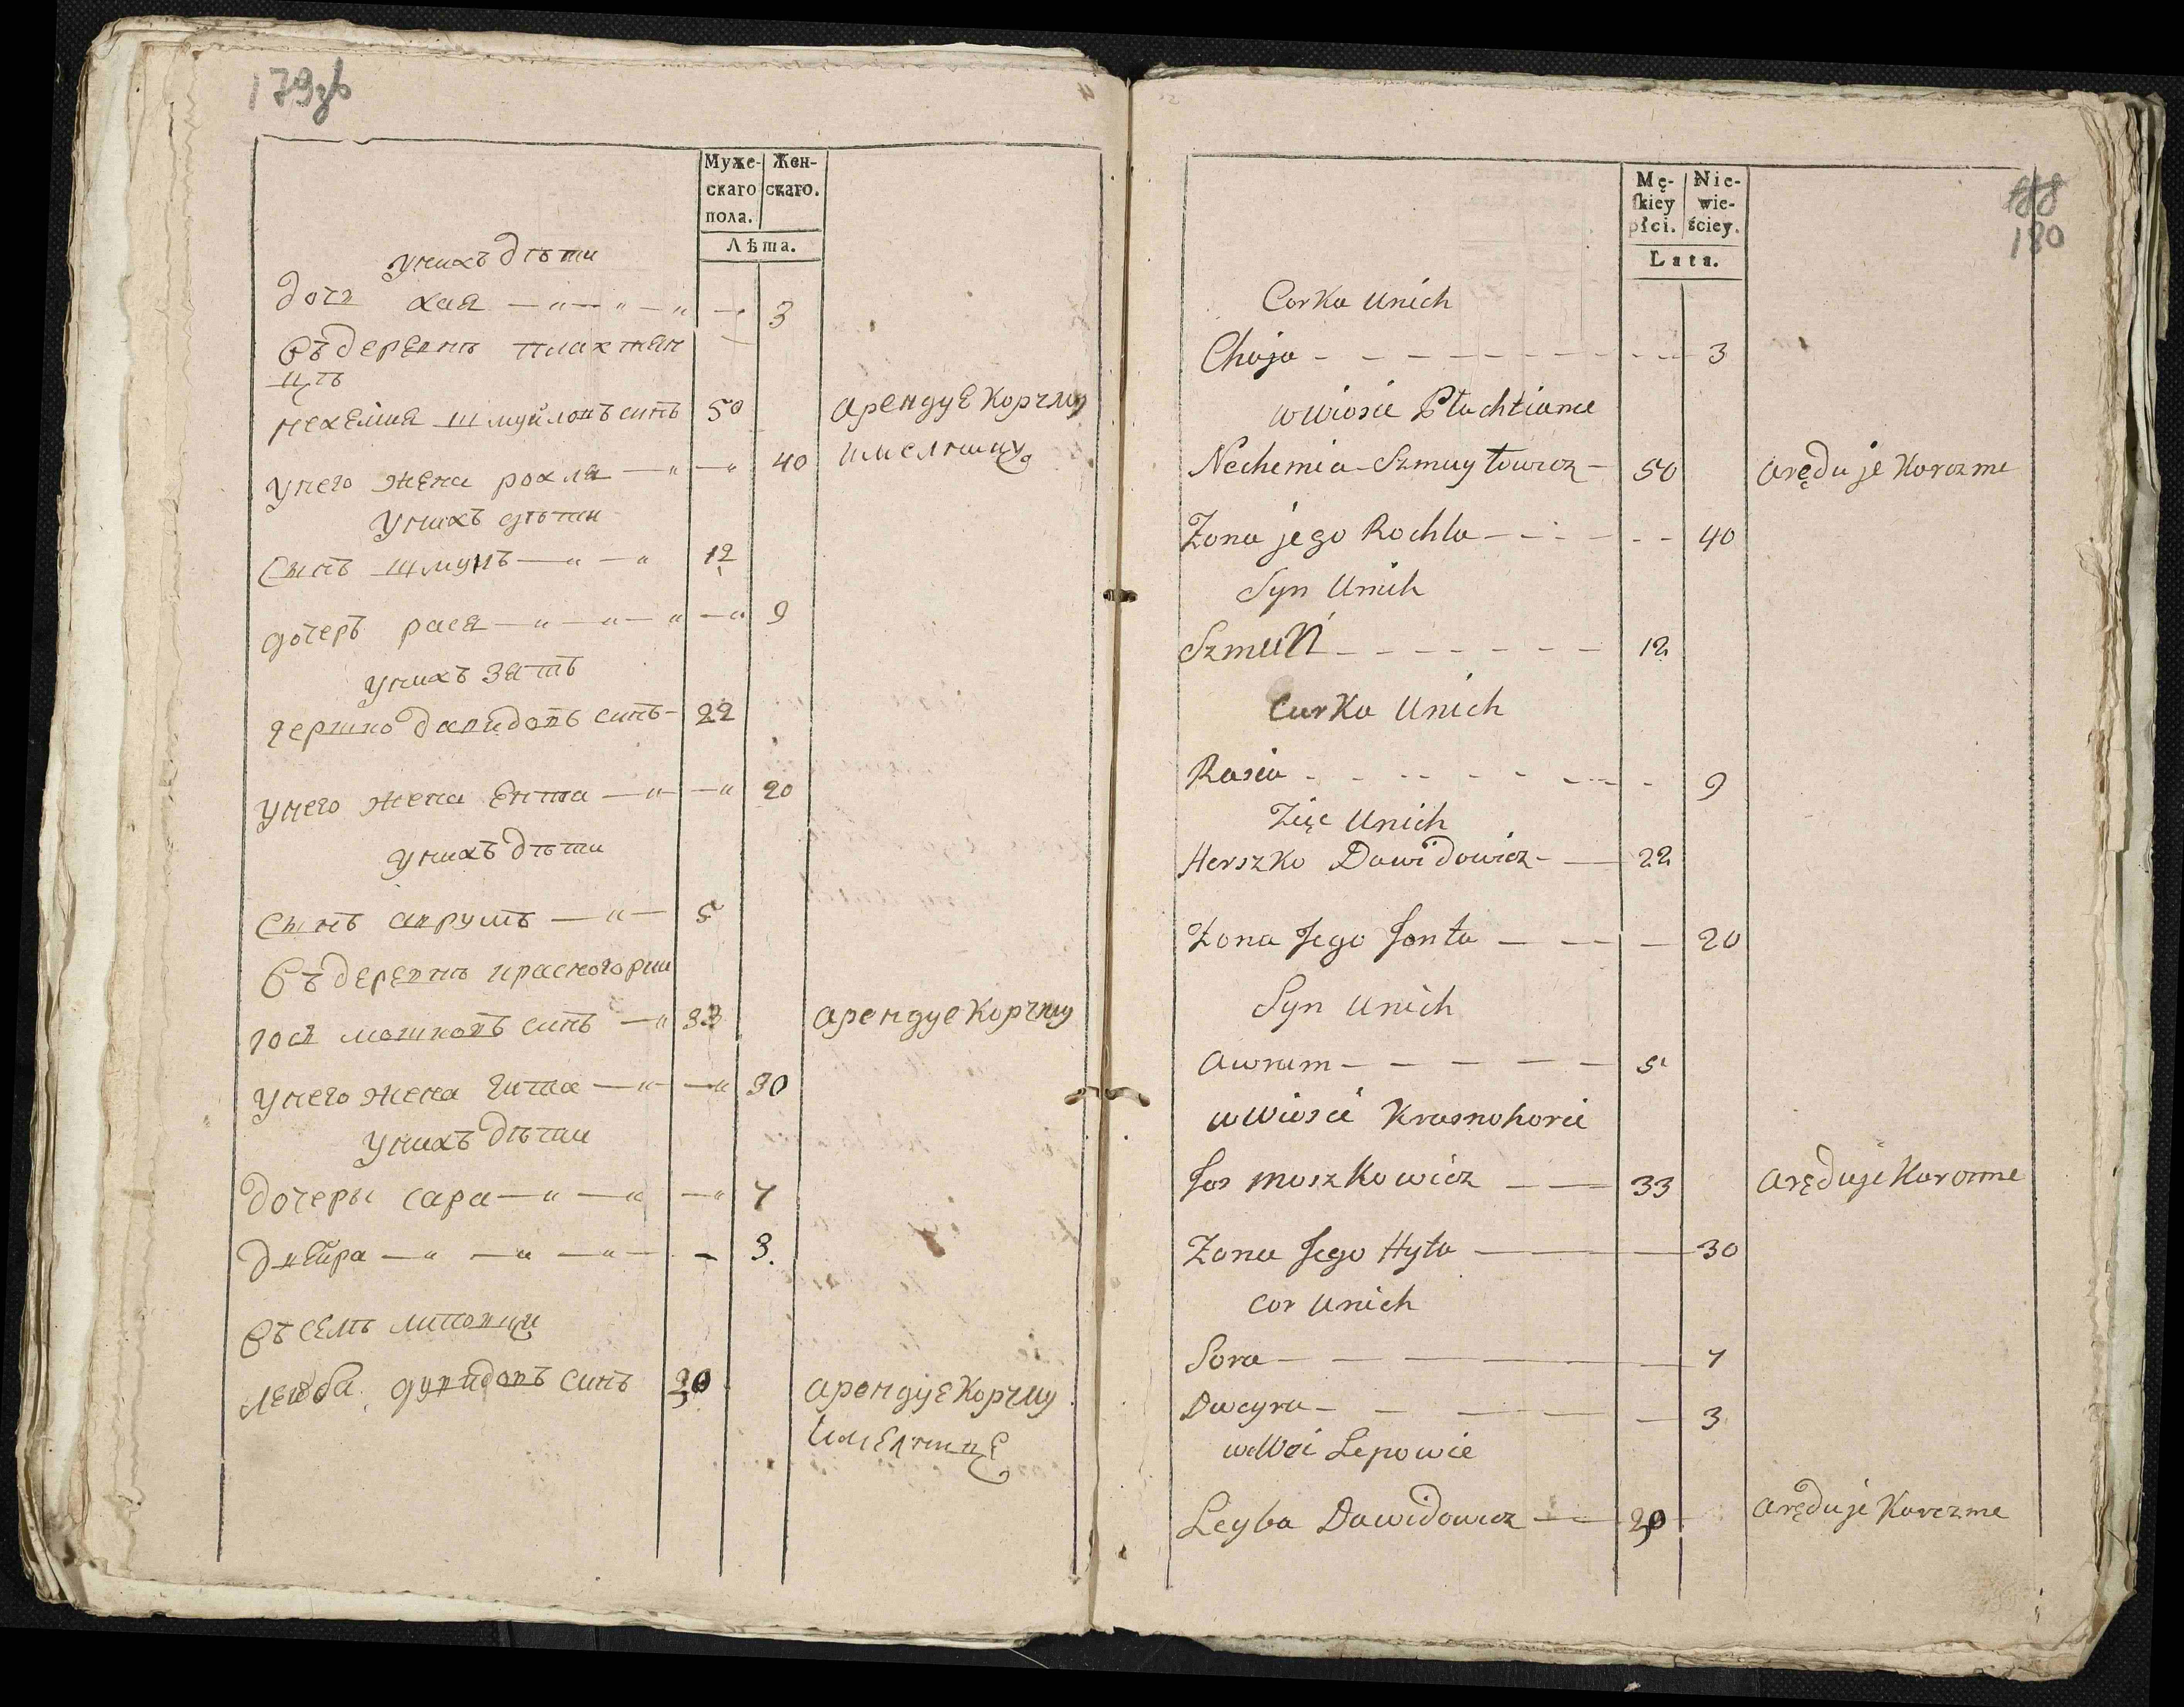 179зв
Муже-
скаго
пола.
Жен-
скаго.
Лѣта.
унихъ дѣти
дочь хая — „ — „ — „ — „ 3
Въ деревнѣ плахтян
цѣ
нехемия шмуйловъ синъ 50 арендуе корчму
унего жена рохля — „ — „ 40
унихъ дѣти
Сынъ шмунъ — „ — „ 12
дочеръ рася — „ — „ — „ — „ 9
унихъ зять
гершко давидовъ синъ - 22
унего жена Ента — „ — „ 20
унихъ дѣти
Сынъ аврумъ — „ — 5
Въ деревнѣ красногорци
госъ мошковъ синъ — „ 33 арендуе корчму
унего жена гита — „ — „ 30
унихъ дѣти
дочеры сара — „ — „ — „ 7
двейра — „ — „ — „ — - 3.
Въ селѣ липовци
лейба давидовъ синъ 30 арендуе корчму
188
180
Mę-
skiey
płci.
Nie-
wie-
ściey.
Lata.
Corka unich
Chaja - - - - - - - - - - 3
w wiosie Płachtiance
Nechemia Szmuyłowicz - 50 arędu je Karczme
Zona jego Rochla - - - - - - 40
Syn Unich
Szmuń - - - - - - - 12
Curka Unich
Rasia - - - - - - - - - - 9
Zięc Unich
Herszko Dawidowicz - — 22
Zona Jego Jenta — — — — 20
Syn unich
Awrum — — — — — 5
w Wiosci Krasnohorce
Jos Moszkowicz — — 33 aręduje Karczme
Zona Jego Hyta — — 30
Cor unich
Sora — — — — — 7
Dweyra — — — — — 3
w Wsi Lepowie
Leyba Dawidowicz — — 30 arędu je Karczme